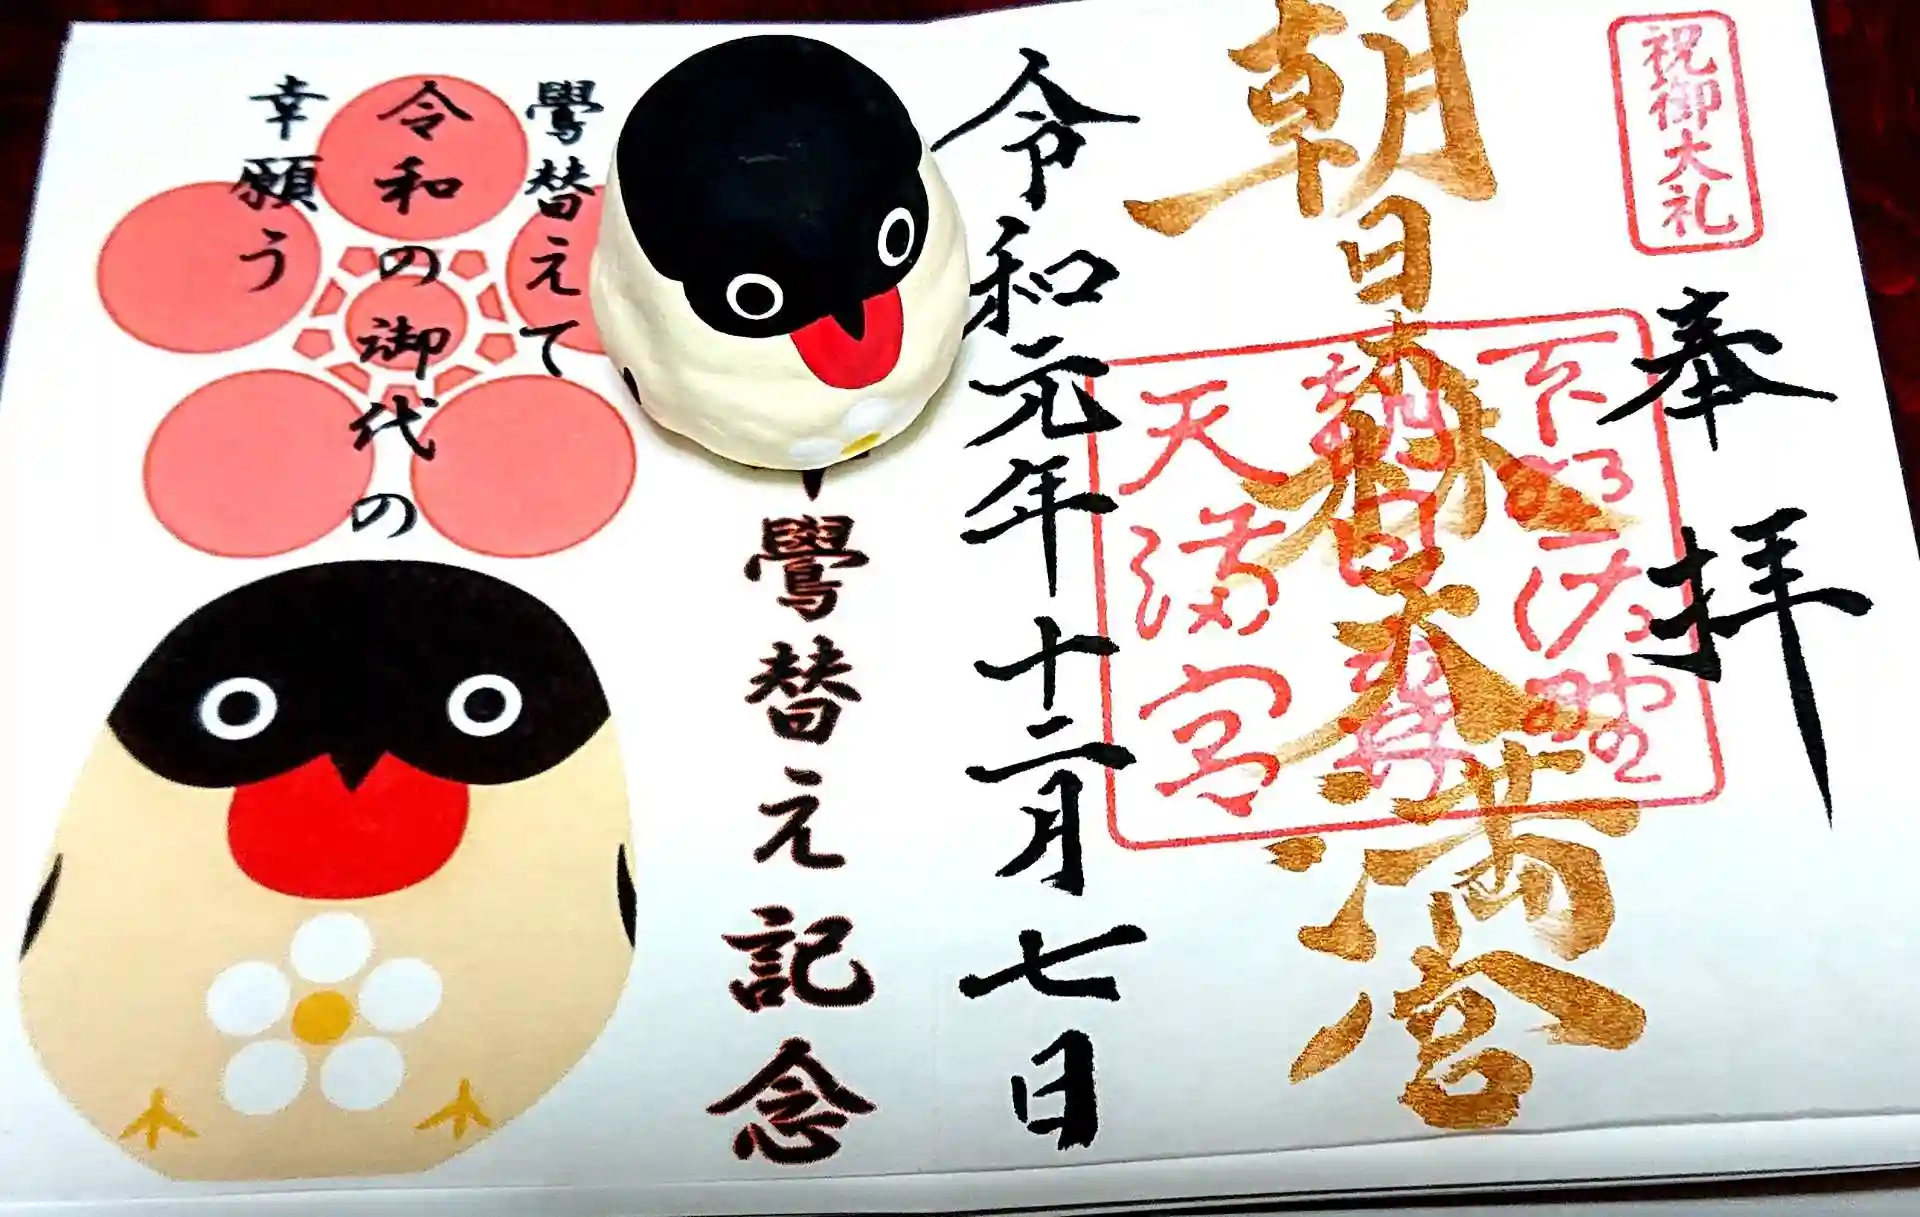 祝御大礼
奉拝
朝日森天満宮
下野佐野
朝日森
天満宮
令和元年十二月七日
鷽替え記念
鷽替えて
令和の御代の
幸願う